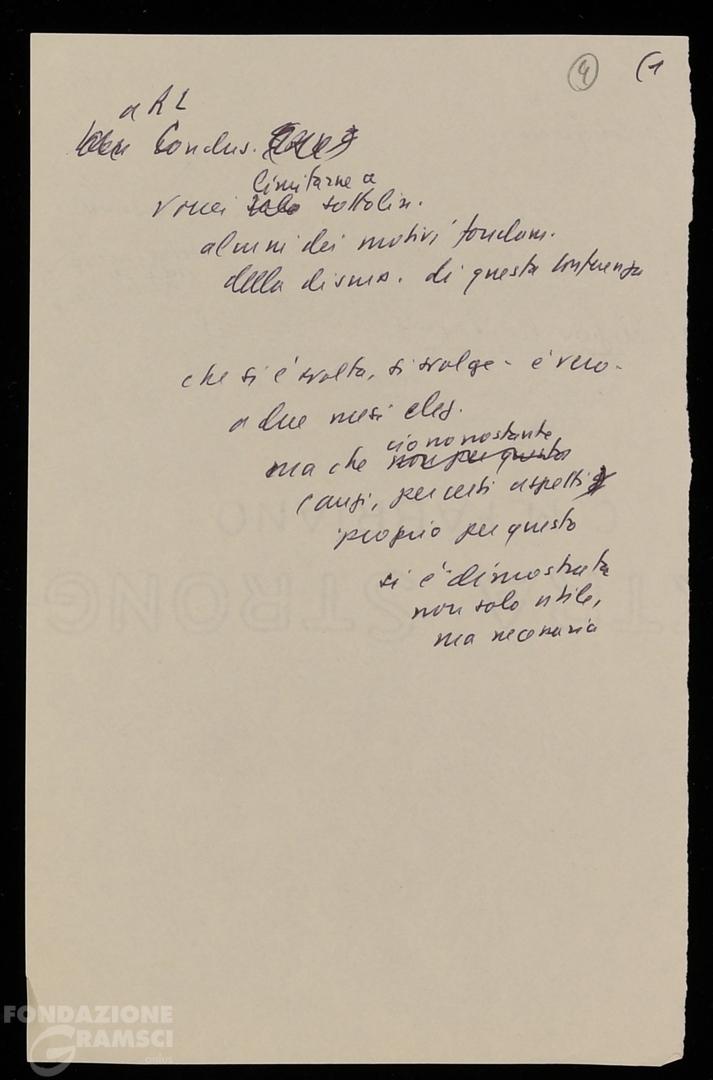 4
(1
a R L
Conclus.
limitarne a
vorrei solo sottolin.
alcuni dei motivi fondam.
della discuss. di questa conferenza
che si è svolta, si svolge - è vero -
a due mesi
ciononostante
ma che non per questo
(anzi, per certi aspetti
proprio per questo
si è dimostrata
non solo utile,
ma necessaria
FONDAZIONE
GRAMSCI
onlus